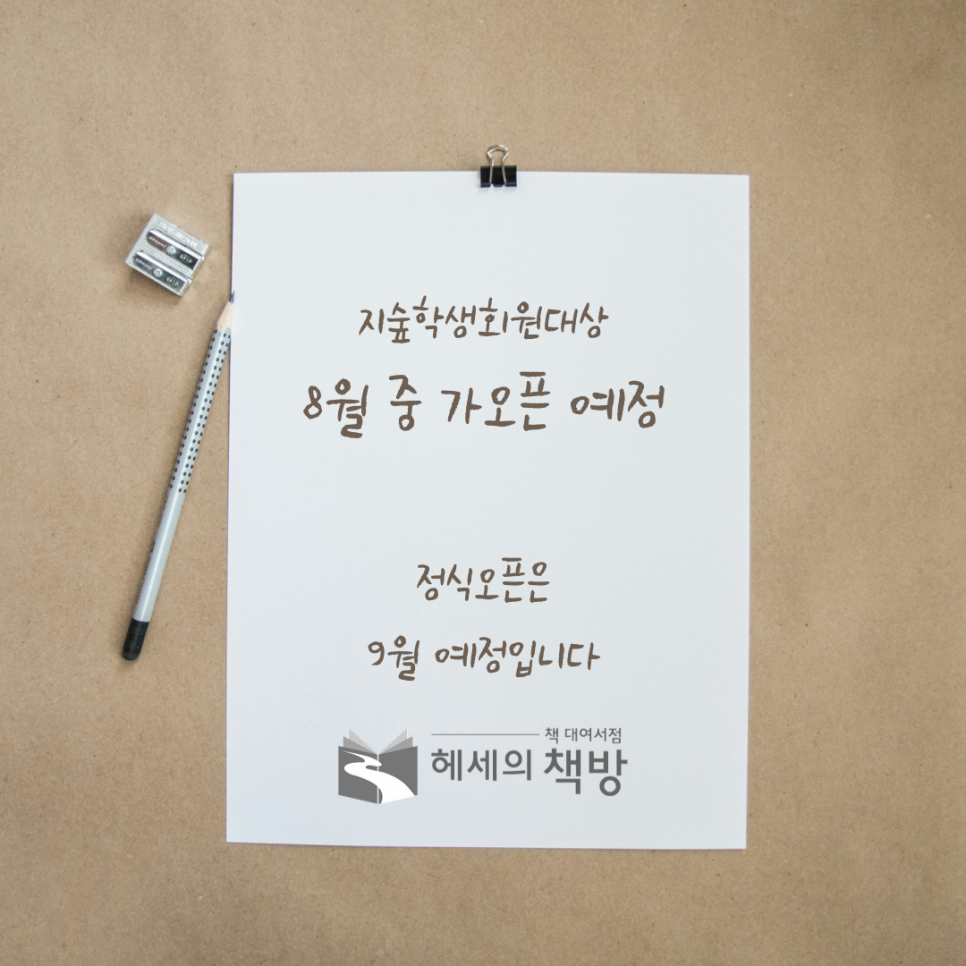 지숲학생회원대상
8월 중 가오픈 예정
정식오픈은
9월 예정입니다
책 대여서점
헤세의 책방